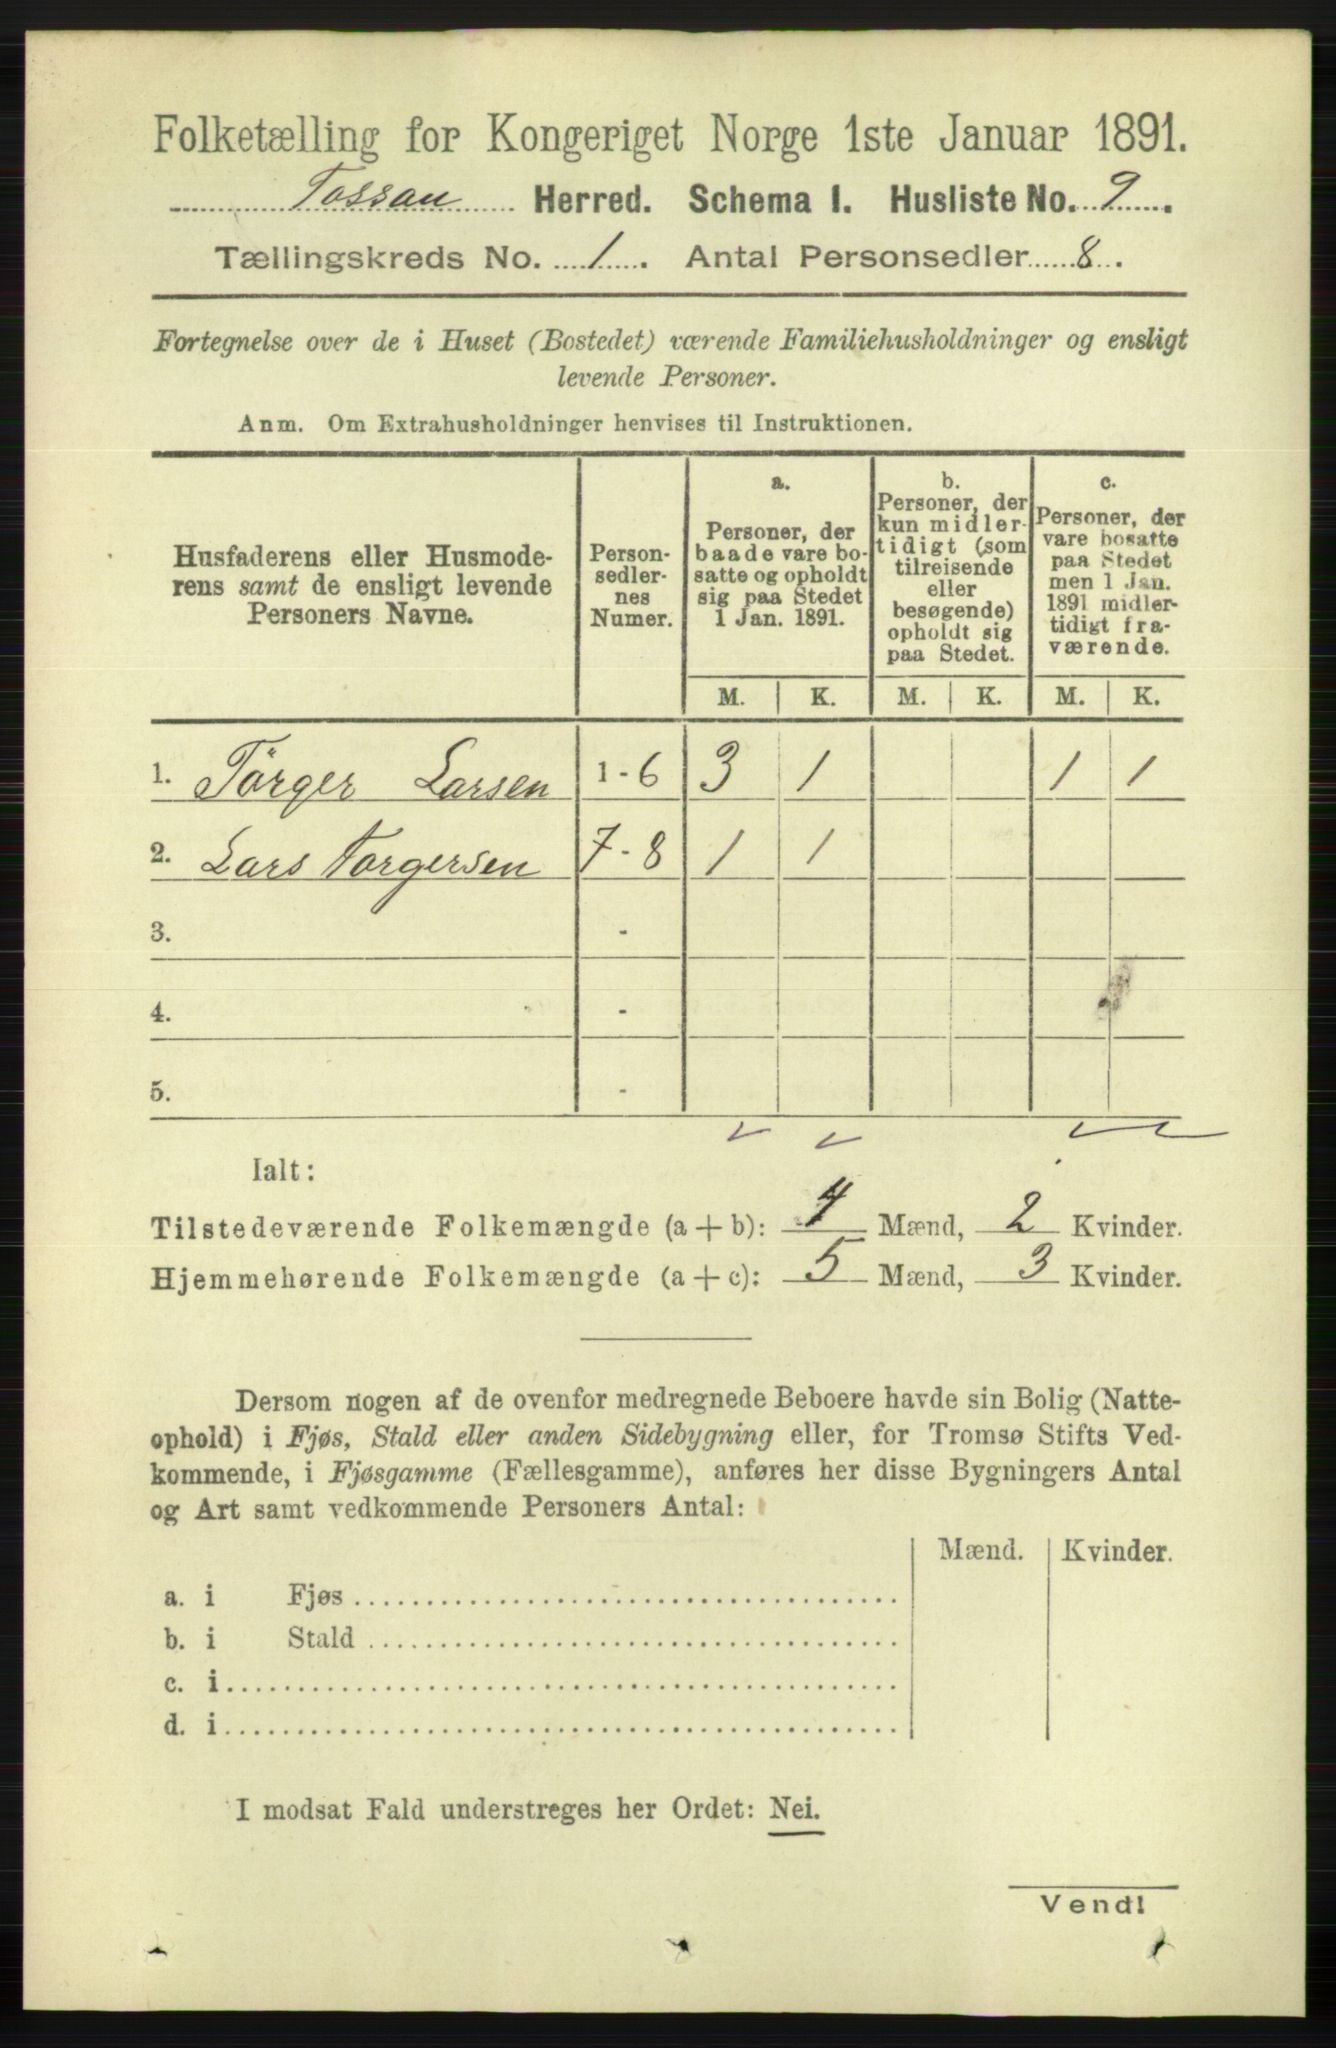 Folketælling for Kongeriget Norge 1ste Januar 1891.
Tossan Herred. Schema I. Husliste No. 9.
Tællingskreds No. 1. Antal Personsedler 8.
Fortegnelse over de i Huset (Bostedet) værende Familiehusholdninger og ensligt
levende Personer.
Anm. Om Extrahusholdninger henvises til Instruktionen.
Husfaderens eller Husmode-
rens samt de ensligt levende
Personers Navne.
Person-
sedler-
nes
Numer.
a.
Personer, der
baade vare bo-
satte og opholdt
sig paa Stedet
1 Jan. 1891.
b.
Personer, der
kun midler-
tidigt (som
tilreisende
eller
besøgende)
opholdt sig
paa Stedet.
c.
Personer, der
vare bosatte
paa Stedet
men 1 Jan.
1891 midler-
tidigt fra-
værende.
M. K. M. K. M. K.
1. Törger Larsen 1-6 3 1 1 1
2. Lars Torgersen 7-8 1 1
3. -
4. -
5. -
Ialt:
Tilstedeværende Folkemængde (a + b): 4 Mænd, 2 Kvinder.
Hjemmehørende Folkemængde (a + c): 5 Mænd, 3 Kvinder.
Dersom nogen af de ovenfor medregnede Beboere havde sin Bolig (Natte-
ophold) i Fjøs, Stald eller anden Sidebygning eller, for Tromsø Stifts Ved-
kommende, i Fjøsgamme (Fællesgamme), anføres her disse Bygningers Antal
og Art samt vedkommende Personers Antal:
Mænd. Kvinder.
a. i Fjøs
b. i Stald
c. i
d. i
I modsat Fald understreges her Ordet: Nei.
Vend!